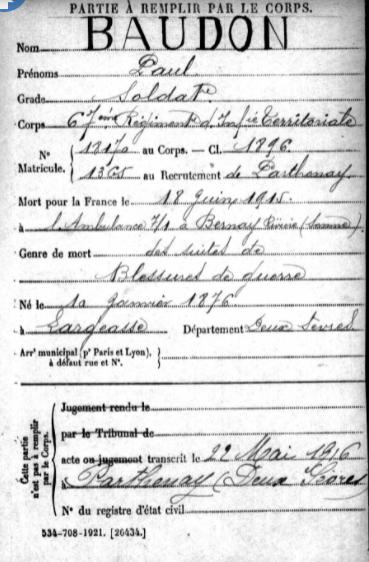 PARTIE À REMPLIR PAR LE CORPS.
Nom BAUDON
Prénoms Paul
Grade Soldat
Corps 67ème Régiment d'Infie Territoriale
N° Matricule. { 13170 au Corps. — Cl. 1896.
1305 au Recrutement de Parthenay
Mort pour la France le 18 Juin 1915.
à l'Ambulance 7/1 à Bernay (Somme).
Genre de mort des suites de
Blessures de guerre
Né le Janvier 1876
à Largeasse Département Deux Sèvres
Arrt municipal (pr Paris et Lyon), à défaut rue et N°.
Cette partie n'est pas à remplir par le Corps.
Jugement rendu le
par le Tribunal de
acte ou jugement transcrit le 22 Mai 1916
à Parthenay (Deux Sèvres
N° du registre d'état civil
534-708-1921. [26434.]